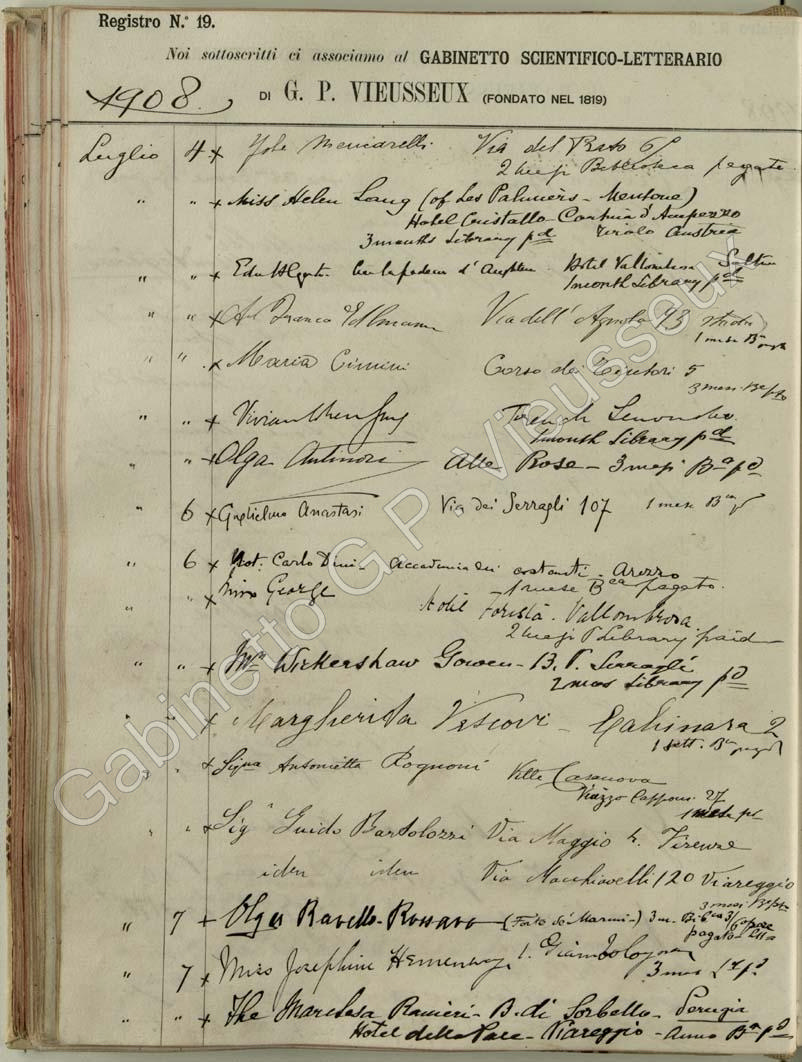 Registro N.º 19.
Noi sottoscritti ci associamo al GABINETTO SCIENTIFICO-LETTERARIO
1908. DI G. P. VIEUSSEUX (FONDATO NEL 1819)
Luglio 4 x Via del Prato
2 mesi Biblioteca pagato
" " x Miss Helen Lang (of Les Palmiers - Mentone)
Hotel Cristallo - Cortina d'Ampezzo
3 months Library pd Tirolo Austria
" " x Hotel Vallombrosa
1 month Library pd
" " x Franco Via dell'
1 mese
" " x Maria Cimini Corso dei Tintori 5
3 mesi
" " x Vivian French
1 month Library pd
" " x Olga Antinori Alle Rose - 3 mesi Ba pd
6 x Guglielmo Anastasi Via dei Serragli 107 1 mese
6 x Carlo Dini - Accademia dei - Arezzo
1 mese Bca pagato.
" " x Miss George Hotel Foresta - Vallombrosa
2 mesi Library paid
" " x Mrs Wickershaw Gowen - 13. V. Serragli
2 mos Library pd
" " x Margherita Vescovi - 2
1 sett.
" " x Signa Antonietta Rognoni Villa Casanova
Viazzo Capponi 27
1 mese
" " x Sigr Guido Bartolozzi Via Maggio Firenze
idem idem Via Macchiavelli 120 Viareggio
3 mesi
" 7 x Olga Ravello Rossano (Forte dei Marmi)
pagato
" 7 x Miss Josephine Hemenway 1. Giambologna
3 mos
" " x The Marchesa Ranieri - B. di Sorbello - Perugia
Hotel della Pace - Viareggio - Anno Ba pd
Gabinetto G.P. Vieusseux